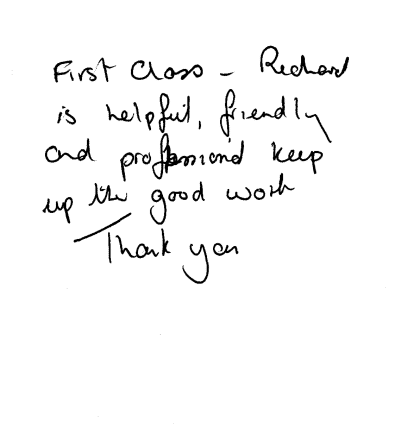 First Class - Richard
is helpful, friendly
and professional keep
up the good work
Thank you